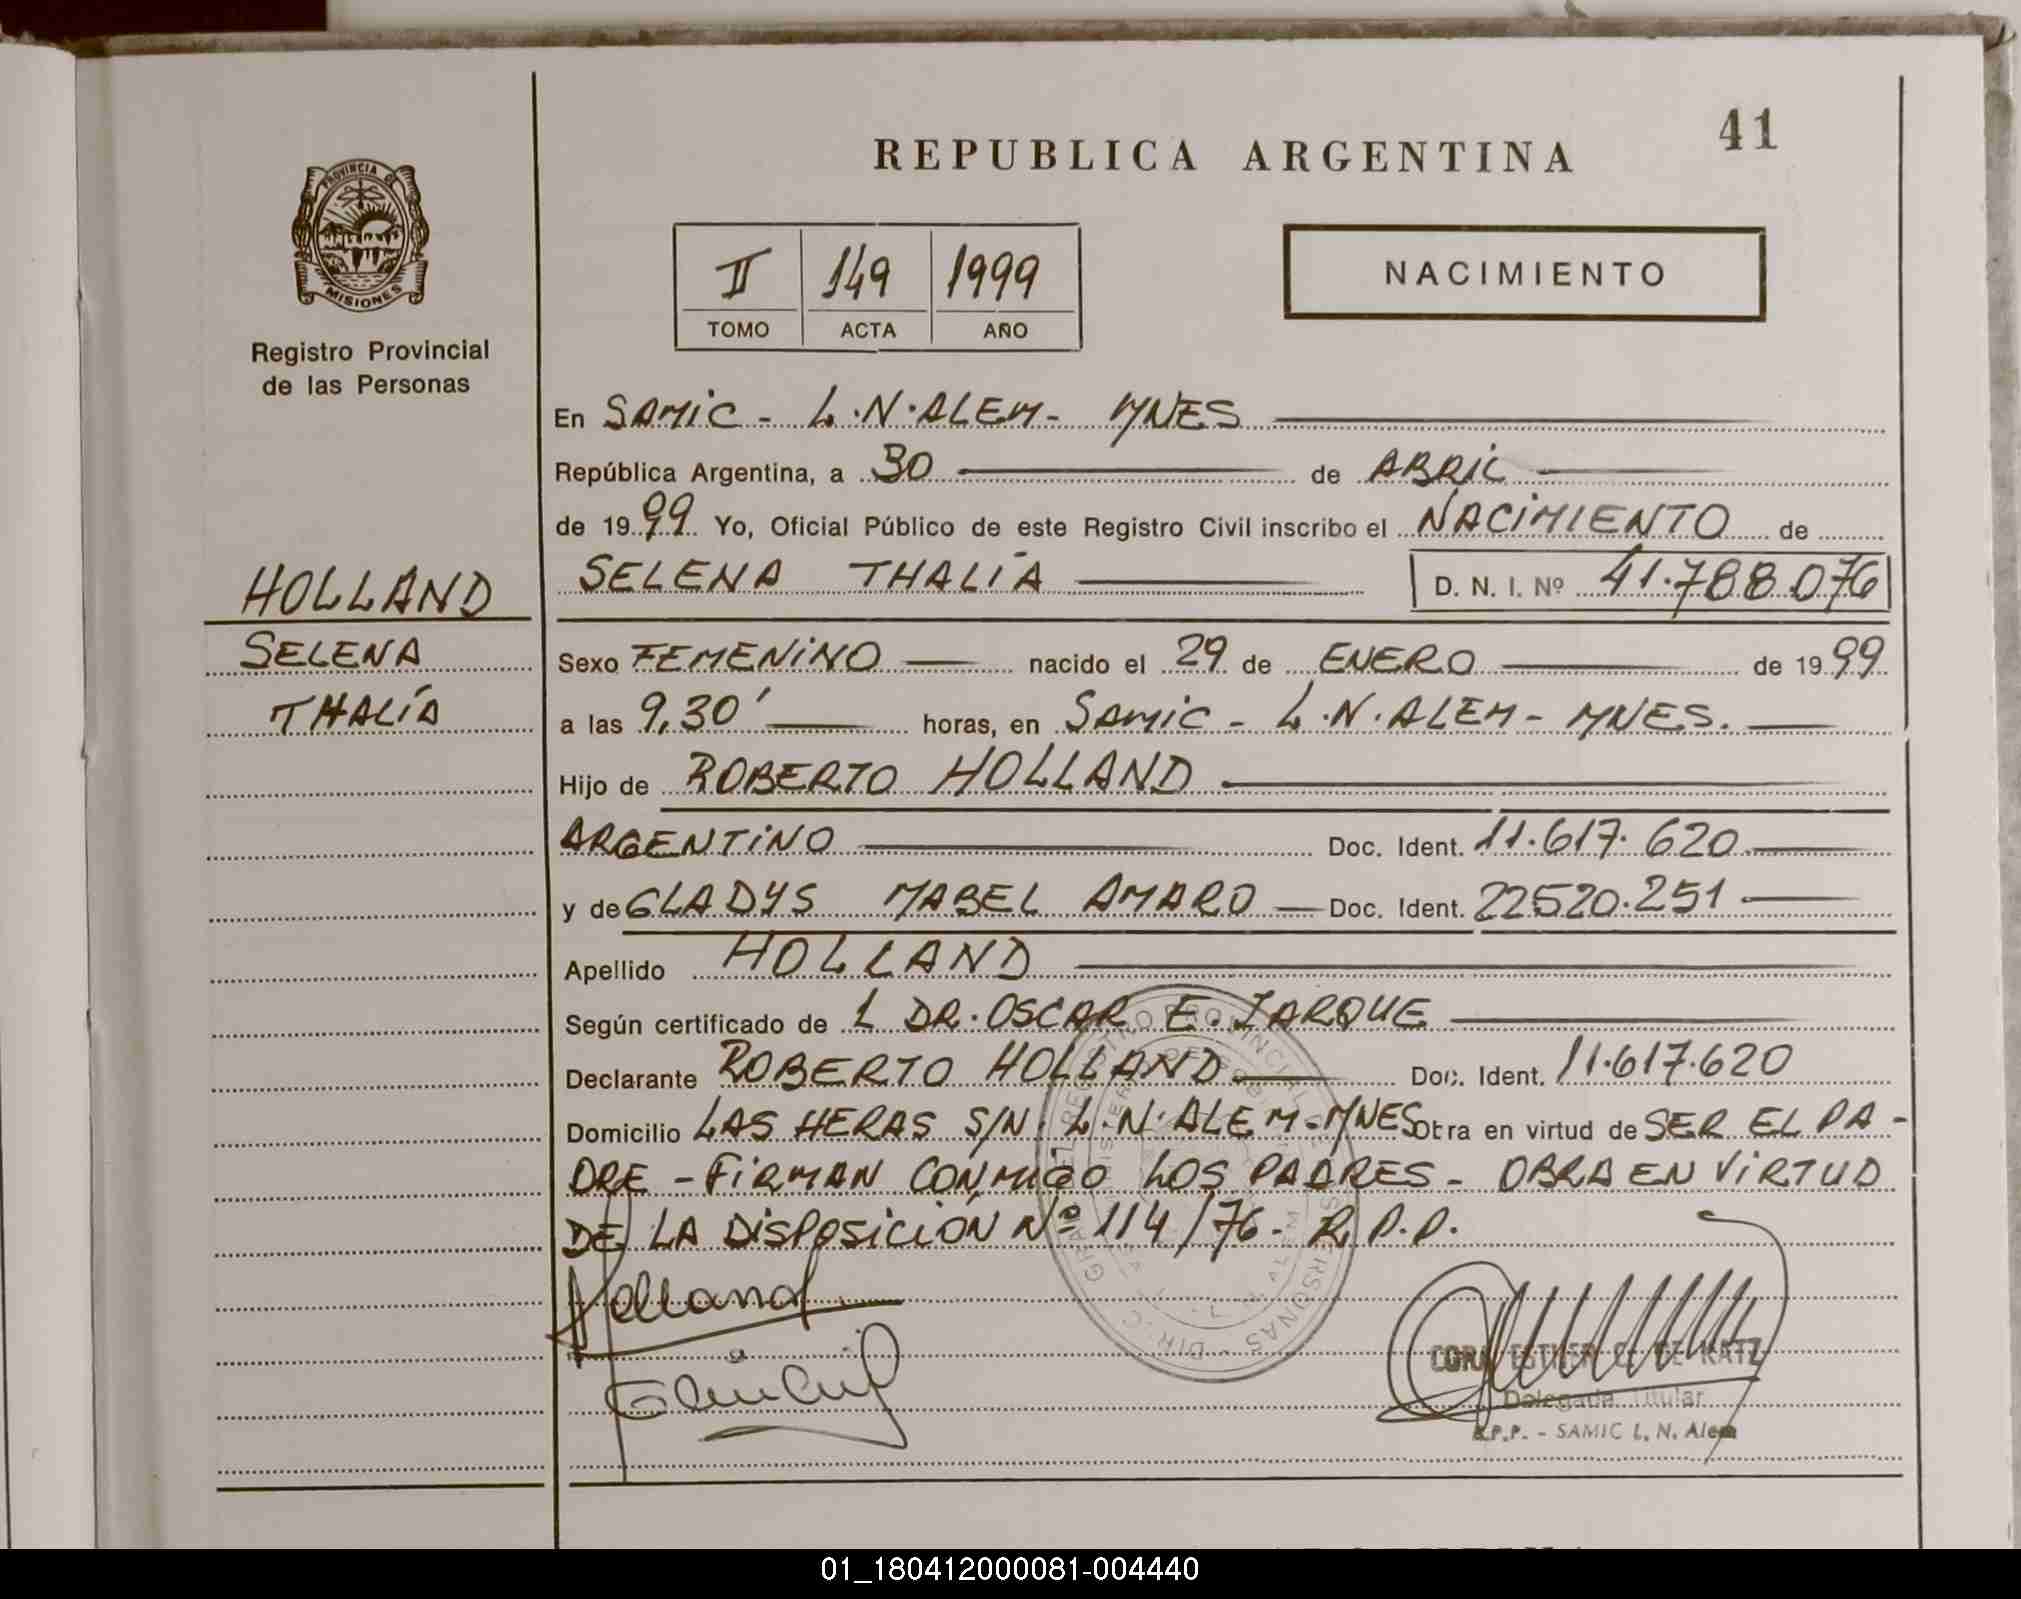 41
REPUBLICA ARGENTINA
PROVINCIA DE
MISIONES
Registro Provincial
de las Personas
II 149 1999
TOMO ACTA AÑO
NACIMIENTO
En SAMIC - L.N.ALEM - MNES
República Argentina, a 30 de ABRIL
de 1999 Yo, Oficial Público de este Registro Civil inscribo el NACIMIENTO de
SELENA THALÍA D. N. I. Nº 41.788.076
HOLLAND
SELENA
THALÍA
Sexo FEMENINO nacido el 29 de ENERO de 1999
a las 9,30' horas, en SAMIC - L.N.ALEM - MNES.
Hijo de ROBERTO HOLLAND
ARGENTINO Doc. Ident. 11.617.620
y de GLADYS MABEL AMARO Doc. Ident. 22520.251
Apellido HOLLAND
Según certificado de L DR. OSCAR E. JARQUE
Declarante ROBERTO HOLLAND Doc. Ident. 11.617.620
Domicilio LAS HERAS S/N. L.N.ALEM-MNES Obra en virtud de SER EL PA-
DRE - FIRMAN CONMIGO LOS PADRES - OBRA EN VIRTUD
DE LA DISPOSICIÓN Nº 114/76 - R.P.P.
Holland
CORA ESTHER C. DE KATZ
Delegada Titular
R.P.P. - SAMIC L. N. Alem
01_180412000081-004440